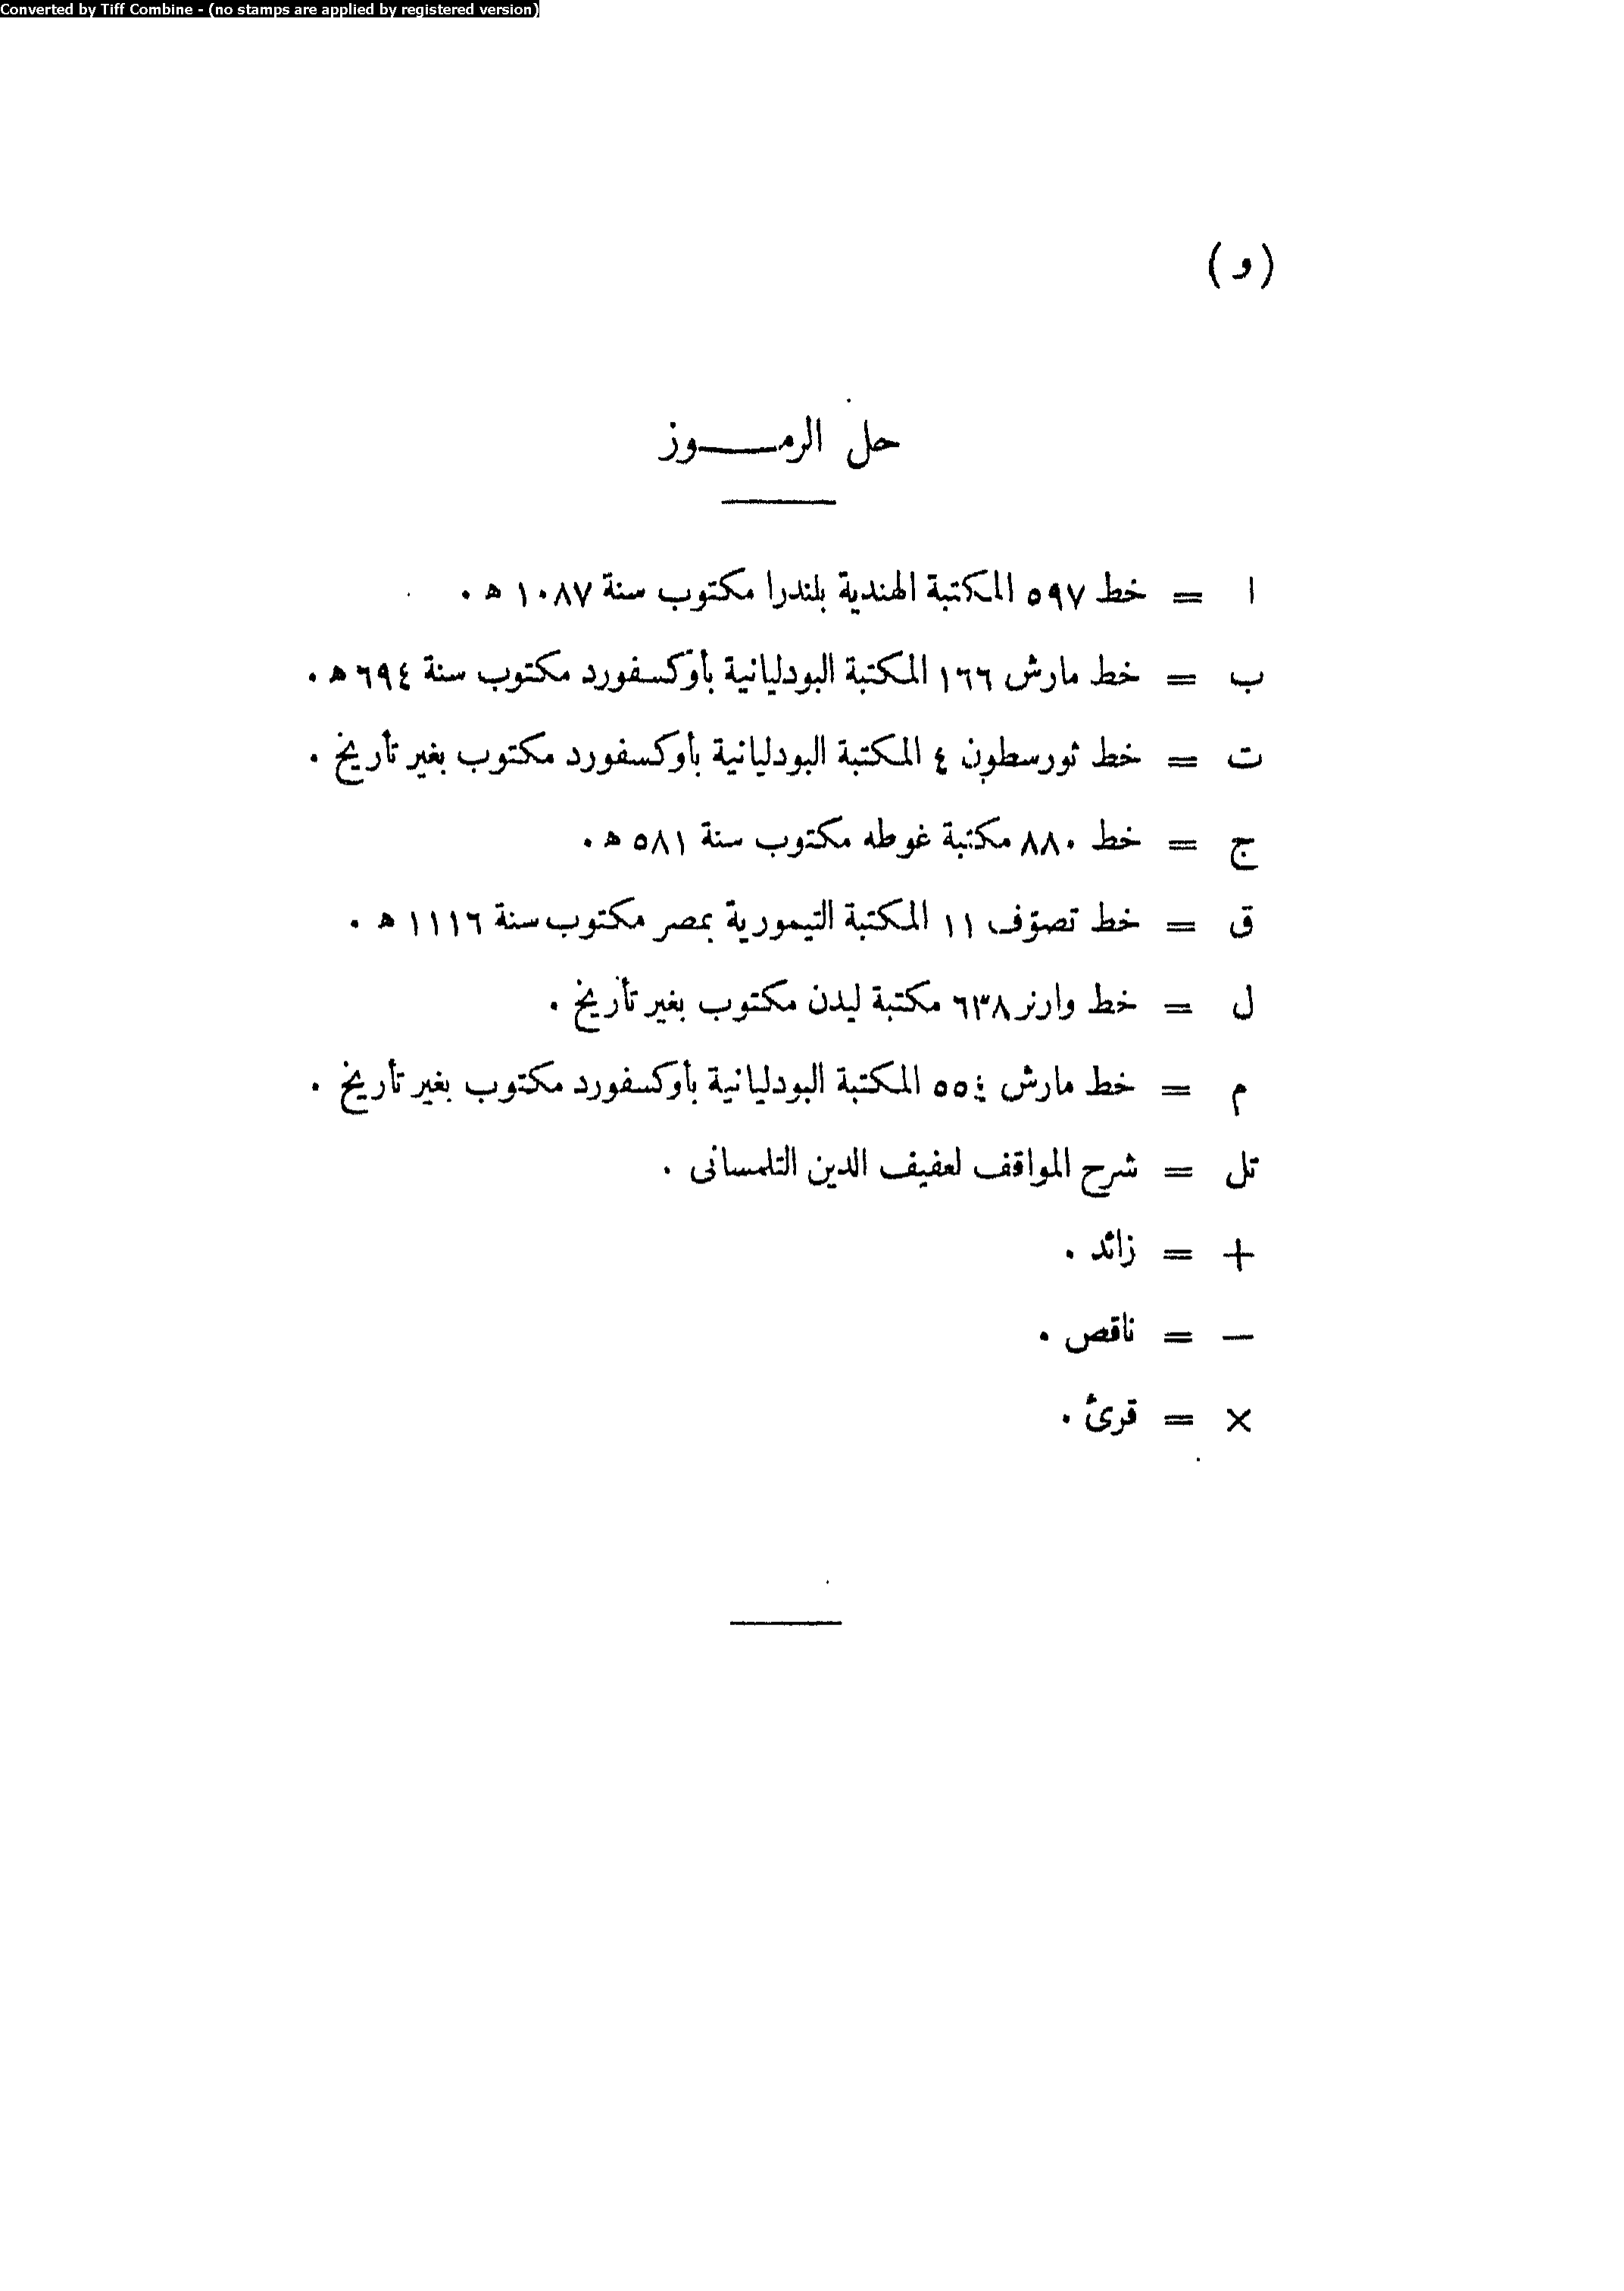 Converted by Tiff Combine - (no stamps are applied by registered version)
(و)
حل الرمـــوز
ا = خط ٥٩٧ المكتبة الهندية بلندرا مكتوب سنة ١٠٨٧ ه .
ب = خط مارش ١٦٦ المكتبة البودليانية بأوكسفورد مكتوب سنة ٦٩٤ ه .
ت = خط ثورسطون ٤ المكتبة البودليانية بأوكسفورد مكتوب بغير تأريخ .
ج = خط ٨٨٠ مكتبة غوطه مكتوب سنة ٥٨١ ه .
ق = خط تصوّف ١١ المكتبة التيمورية بمصر مكتوب سنة ١١١٦ ه .
ل = خط وارنر ٦٣٨ مكتبة ليدن مكتوب بغير تأريخ .
م = خط مارش ٥٥٤ المكتبة البودليانية بأوكسفورد مكتوب بغير تأريخ .
تل = شرح المواقف لعفيف الدين التلمسانى .
+ = زائد .
— = ناقص .
× = قرئ .